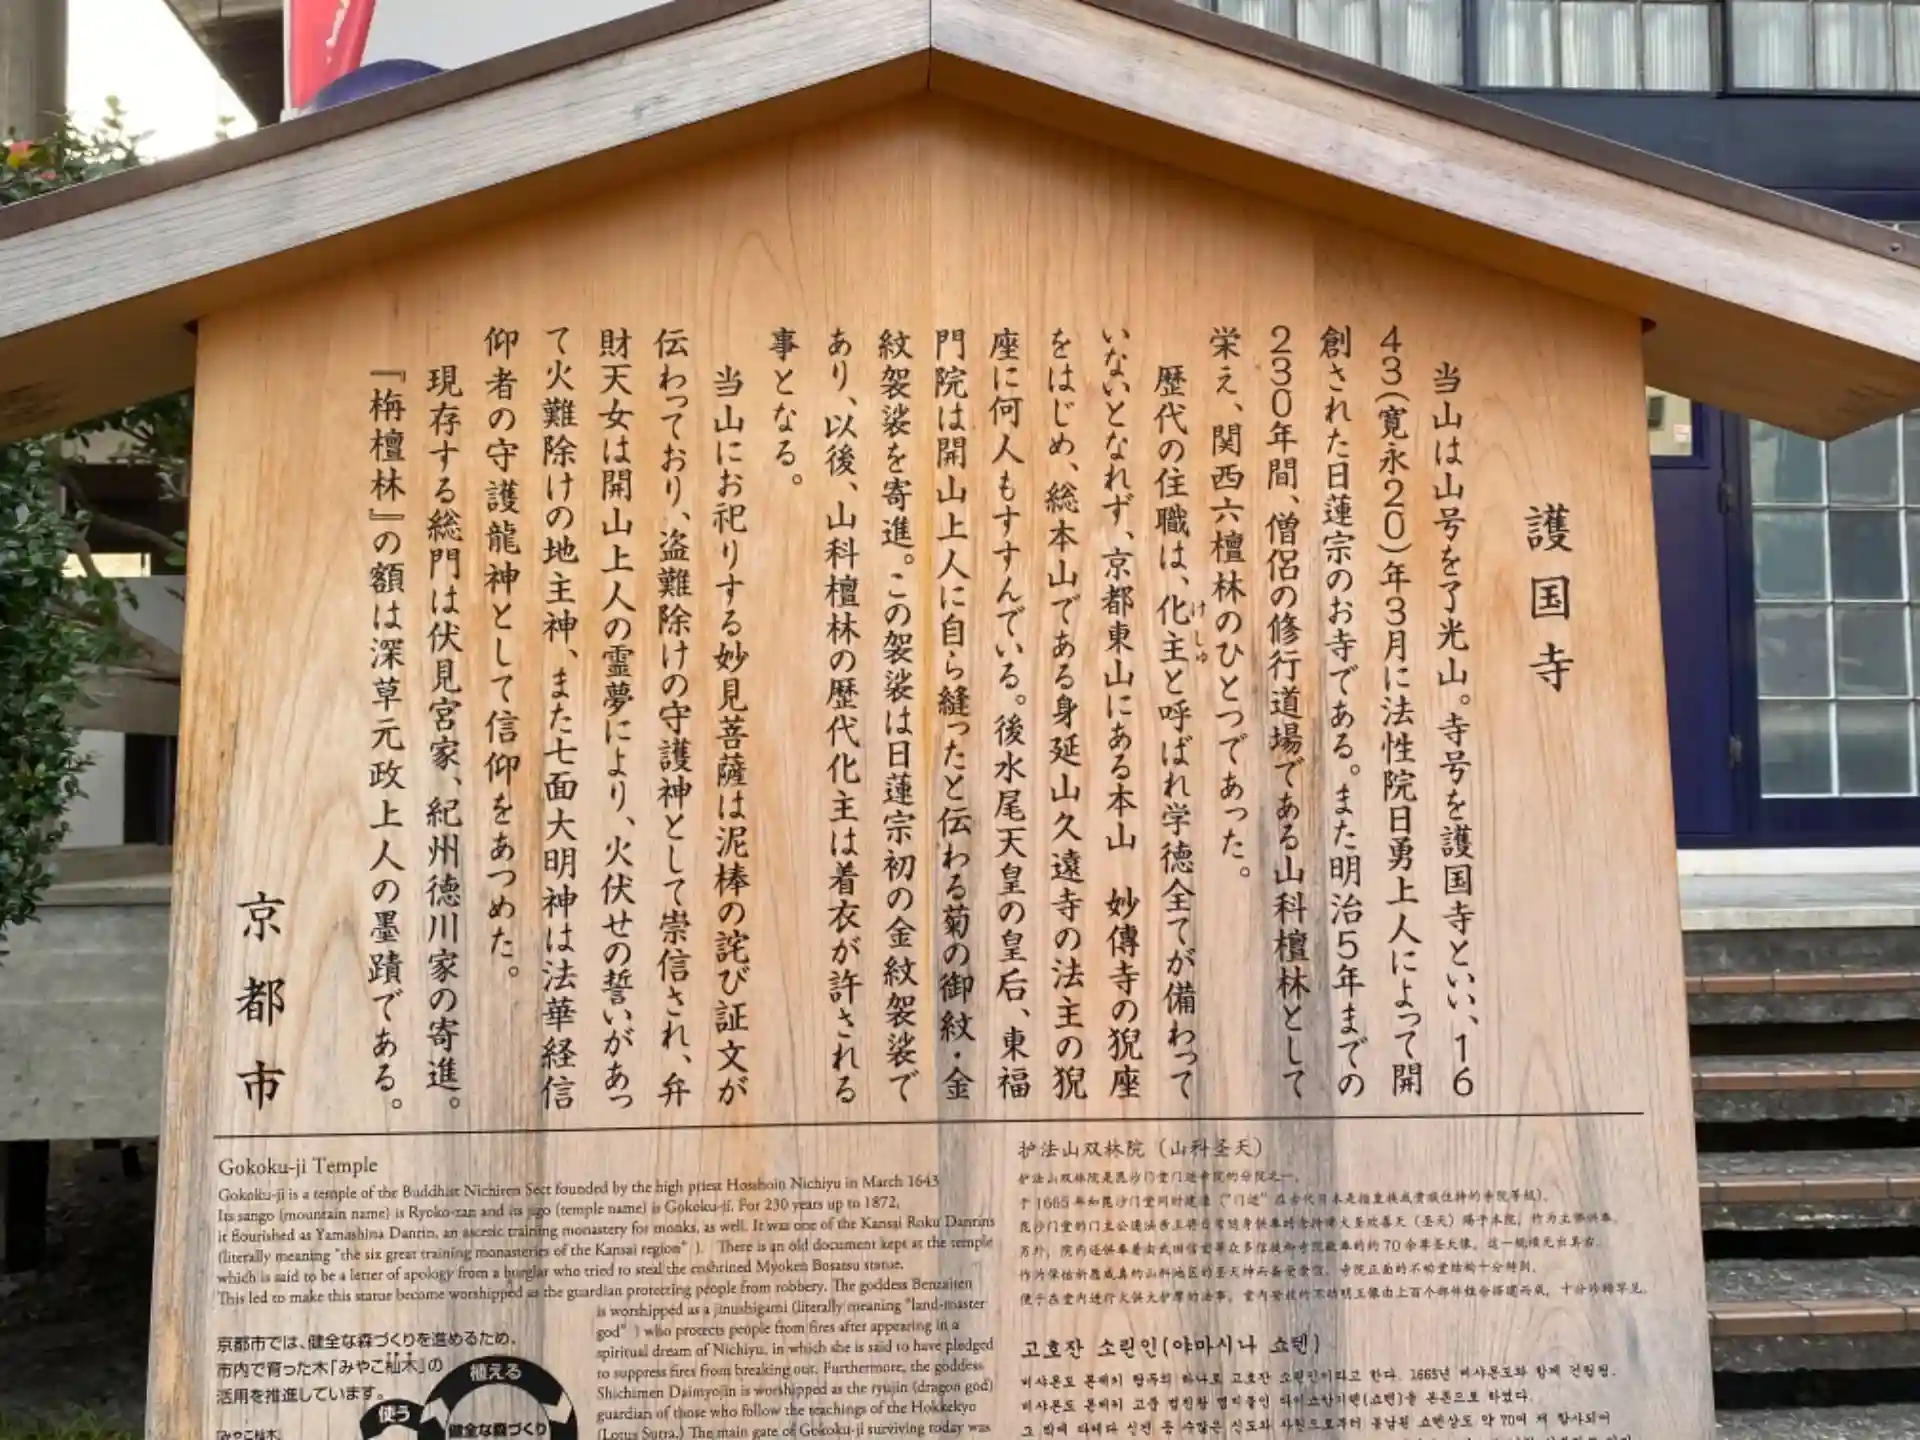 護国寺
当山は山号を了光山。寺号を護国寺といい、16
43(寛永20)年3月に法性院日勇上人によって開
創された日蓮宗のお寺である。また明治5年までの
230年間、僧侶の修行道場である山科檀林として
栄え、関西六檀林のひとつであった。
歴代の住職は、化主と呼ばれ学徳全てが備わって
けしゅ
いないとなれず、京都東山にある本山 妙傳寺の猊座
をはじめ、総本山である身延山久遠寺の法主の猊
座に何人もすすんでいる。後水尾天皇の皇后、東福
門院は開山上人に自ら縫ったと伝わる菊の御紋・金
紋袈裟を寄進。この袈裟は日蓮宗初の金紋袈裟で
あり、以後、山科檀林の歴代化主は着衣が許される
事となる。
当山にお祀りする妙見菩薩は泥棒の詫び証文が
伝わっており、盗難除けの守護神として崇信され、弁
財天女は開山上人の霊夢により、火伏せの誓いがあっ
て火難除けの地主神、また七面大明神は法華経信
仰者の守護龍神として信仰をあつめた。
現存する総門は伏見宮家、紀州徳川家の寄進。
『栴檀林』の額は深草元政上人の墨蹟である。
京都市
Gokoku-ji Temple
Gokoku-ji is a temple of the Buddhist Nichiren Sect founded by the high priest Hosshoin Nichiyu in March 1643.
Its sango (mountain name) is Ryoko-zan and its jigo (temple name) is Gokoku-ji. For 230 years up to 1872,
it flourished as Yamashina Danrin, an ascetic training monastery for monks, as well. It was one of the Kansai Roku Danrins
(literally meaning "the six great training monasteries of the Kansai region" ). There is an old document kept at the temple
which is said to be a letter of apology from a burglar who tried to steal the enshrined Myoken Bosatsu statue.
This led to make this statue become worshipped as the guardian protecting people from robbery. The goddess Benzaiten
is worshipped as a jinushigami (literally meaning "land-master
god" ) who protects people from fires after appearing in a
spiritual dream of Nichiyu, in which she is said to have pledged
to suppress fires from breaking out. Furthermore, the goddess
Shichimen Daimyojin is worshipped as the ryujin (dragon god)
guardian of those who follow the teachings of the Hokkekyo
(Lotus Sutra.) The main gate of Gokoku-ji surviving today was
京都市では、健全な森づくりを進めるため、
市内で育った木「みやこ杣木」の
活用を推進しています。
植える
使う
健全な森づくり
みやこ杣木
护法山双林院（山科圣天）
护法山双林院是毘沙门堂门迹寺院的分院之一。
于1665年和毘沙门堂同时建造（"门迹"在古代日本是指皇族或贵族住持的寺院等级）。
고호잔 소린인(야마시나 쇼텐)